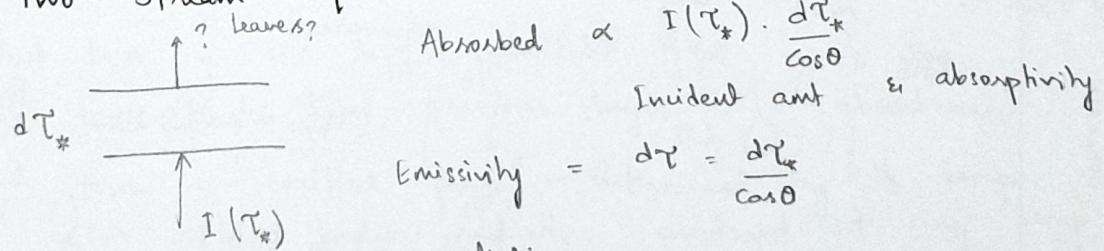 Two Stream
? Leaves?
Absorbed ∝ I(τ*) · dτ*/cosθ
Incident amt & absorptivity
dτ*
Emissivity = dτ = dτ*/cosθ
I(τ*)